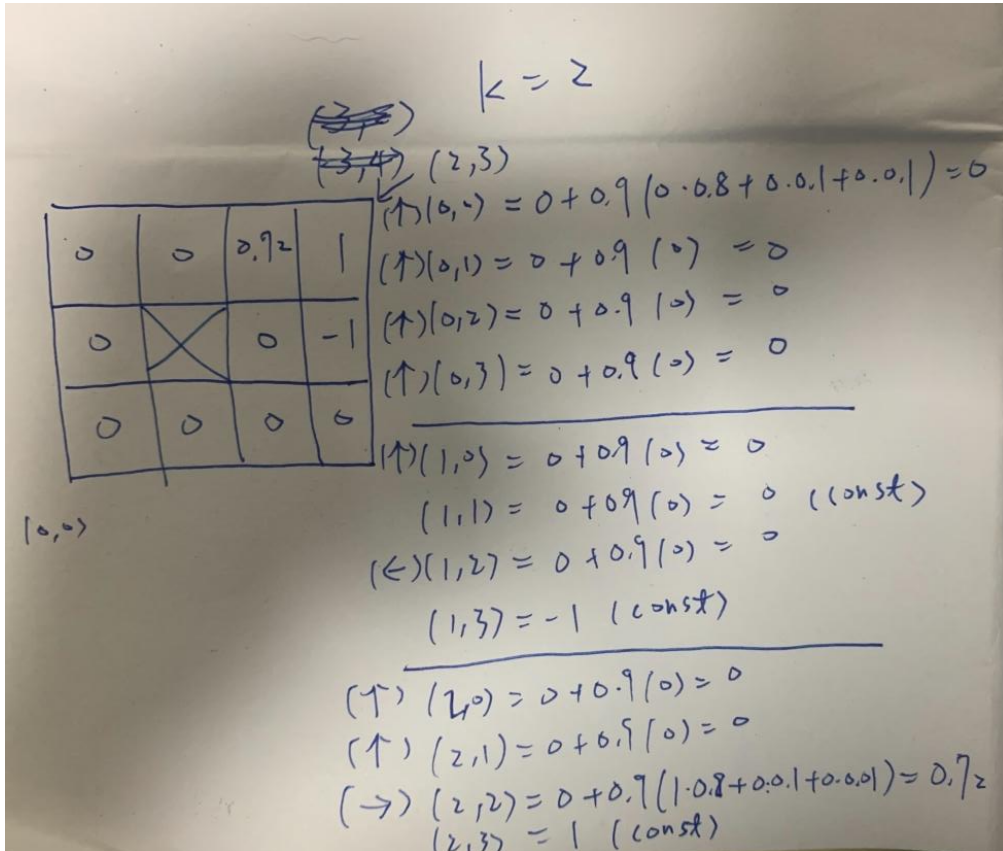 k = 2
(2,3)
0 0 0.72 1
0 0 -1
0 0 0 0
(0,0)
(↑)(0,0) = 0 + 0.9 (0·0.8 + 0·0.1 + 0·0.1) = 0
(↑)(0,1) = 0 + 0.9 (0) = 0
(↑)(0,2) = 0 + 0.9 (0) = 0
(↑)(0,3) = 0 + 0.9 (0) = 0
(↑)(1,0) = 0 + 0.9 (0) = 0
(1,1) = 0 + 0.9 (0) = 0 (const)
(←)(1,2) = 0 + 0.9 (0) = 0
(1,3) = -1 (const)
(↑) (2,0) = 0 + 0.9 (0) = 0
(↑) (2,1) = 0 + 0.9 (0) = 0
(→) (2,2) = 0 + 0.9 (1·0.8 + 0·0.1 + 0·0.01) = 0.72
(2,3) = 1 (const)